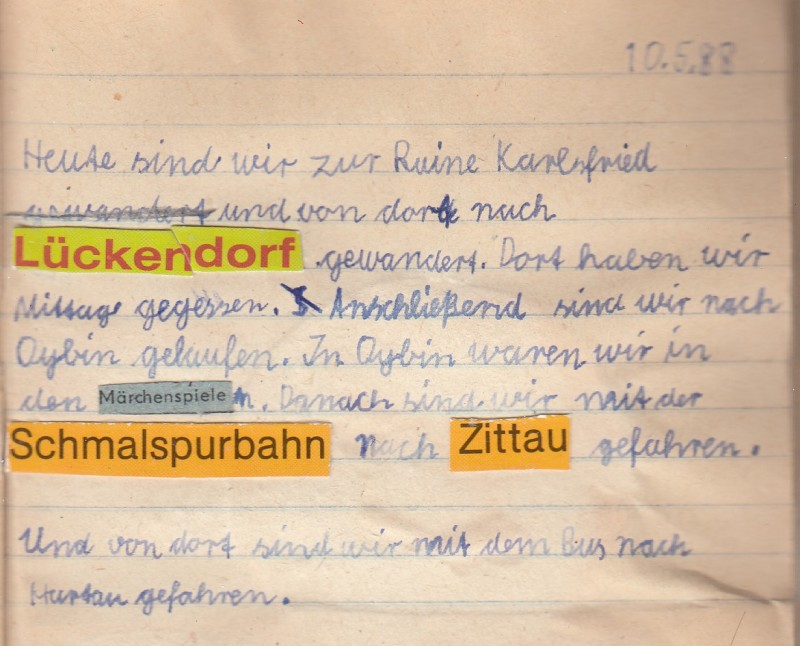 10.5.88
Heute sind wir zur Ruine Karlsfried
gewandert und von dort nach
Lückendorf gewandert. Dort haben wir
Mittag gegessen. Anschließend sind wir nach
Oybin gelaufen. In Oybin waren wir in
den Märchenspielen. Danach sind wir mit der
Schmalspurbahn nach Zittau gefahren.
Und von dort sind wir mit dem Bus nach
Hartau gefahren.